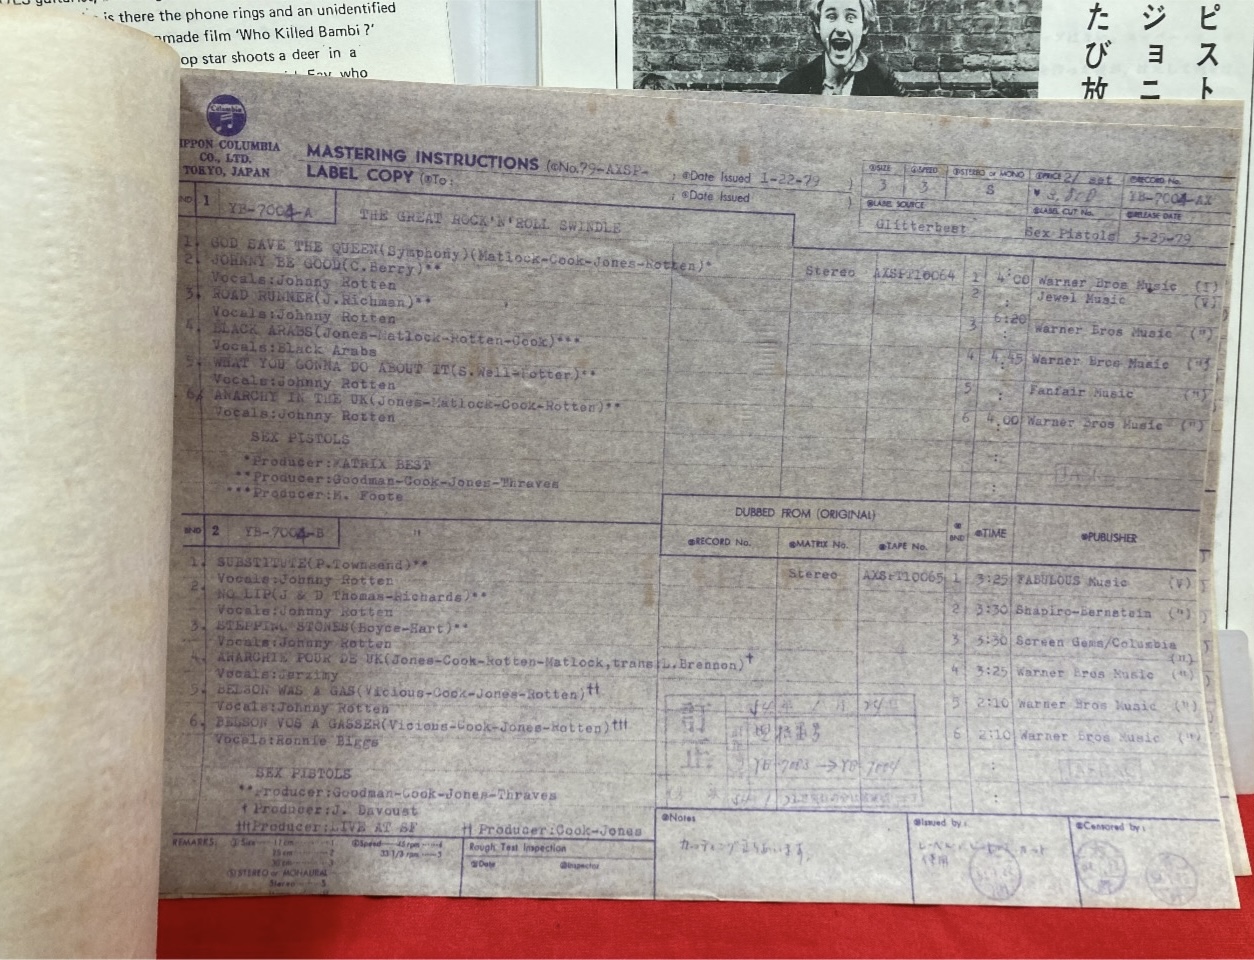 is there the phone rings and an unidentified
made film 'Who Killed Bambi?'
op star shoots a deer in a
who
ピスト
ジョニ
たび放
Columbia
IPPON COLUMBIA
CO., LTD.
TOKYO, JAPAN
MASTERING INSTRUCTIONS (No.79-AXSP-
LABEL COPY (To:
Date Issued 1-22-79
Date Issued
SIZE SPEED STEREO or MONO PRICE 2/ set RECORD No.
3 3 S YB-7004-AX
LABEL SOURCE LABEL CUT No. RELEASE DATE
Glitterbest Sex Pistols 3-25-79
1 YB-7004-A THE GREAT ROCK'N'ROLL SWINDLE
1. GOD SAVE THE QUEEN(Symphony)(Matlock-Cook-Jones-Rotten)* Stereo AXSPT10064 1 4:00 Warner Bros Music
2. JOHNNY BE GOOD(C.Berry)** 2 Jewel Music
Vocals:Johnny Rotten
3. ROAD RUNNER(J.Richman)** 3 6:20 Warner Bros Music (")
Vocals:Johnny Rotten
4. BLACK ARABS(Jones-Matlock-Rotten-Cook)*** 4 4.45 Warner Bros Music (")
Vocals:Black Arabs
5. WHAT YOU GONNA DO ABOUT IT(S.Well-Potter)** 5 Fanfair Music (")
Vocals:Johnny Rotten
6. ANARCHY IN THE UK(Jones-Matlock-Cook-Rotten)** 6 4.00 Warner Bros Music (")
Vocals:Johnny Rotten
SEX PISTOLS
*Producer:MATRIX BEST
**Producer:Goodman-Cook-Jones-Thraves
***Producer:K. Foote
DUBBED FROM (ORIGINAL)
2 YB-7004-B "
RECORD No. MATRIX No. TAPE No. BND TIME PUBLISHER
1. SUBSTITUTE(P.Townsend)** Stereo AXSPT10065 1 3:25 FABULOUS Music (V)
Vocals:Johnny Rotten
2. NO LIP(J & D Thomas-Richards)** 2 3:30 Shapiro-Bernstein (")
Vocals:Johnny Rotten
3. STEPPING STONES(Boyce-Hart)** 3 3:30 Screen Gems/Columbia (")
Vocals:Johnny Rotten
4. ANARCHIE POUR DE UK(Jones-Cook-Rotten-Matlock,trans:L.Brennon)† 4 3:25 Warner Bros Music (")
Vocals:Jerzimy
5. BELSON WAS A GAS(Vicious-Cook-Jones-Rotten)†† 5 2:10 Warner Bros Music (")
Vocals:Johnny Rotten
6. BELSON VOS A GASSER(Vicious-Cook-Jones-Rotten)††† 6 2:10 Warner Bros Music (")
Vocals:Ronnie Biggs
YB-7003 → YB-7004
SEX PISTOLS
**Producer:Goodman-Cook-Jones-Thraves
†Producer:J. Davoust
†††Producer:LIVE AT SF ††Producer:Cook-Jones
REMARKS: Size 17 cm 1 Speed 45 rpm 4
25 cm 2 33 1/3 rpm 3
30 cm 3
STEREO or MONAURAL
Stereo S
Rough Test Inspection
Date Inspector
Notes
Issued by:
Censored by: